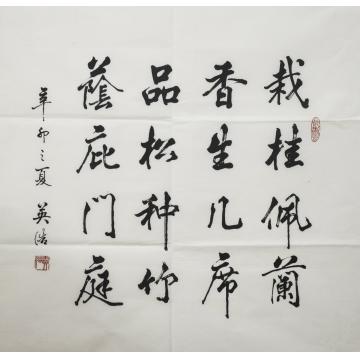 栽桂佩蘭
香生几席
品松种竹
蔭庇門庭
辛卯之夏 英浩